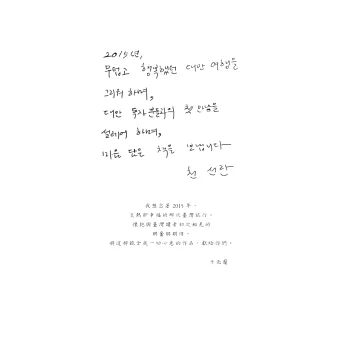 2015년,
무덥고 행복했던 대만 여행을
그리워 하며,
대만 독자분들과의 첫 만남을
설레어 하며,
마음 담은 책을 보냅니다
천선란
我懷念著2015年,
炎熱卻幸福的那次臺灣旅行。
懷抱與臺灣讀者初次相見的
興奮與期待,
將這部飽含我一切心意的作品,獻給你們。
千先蘭